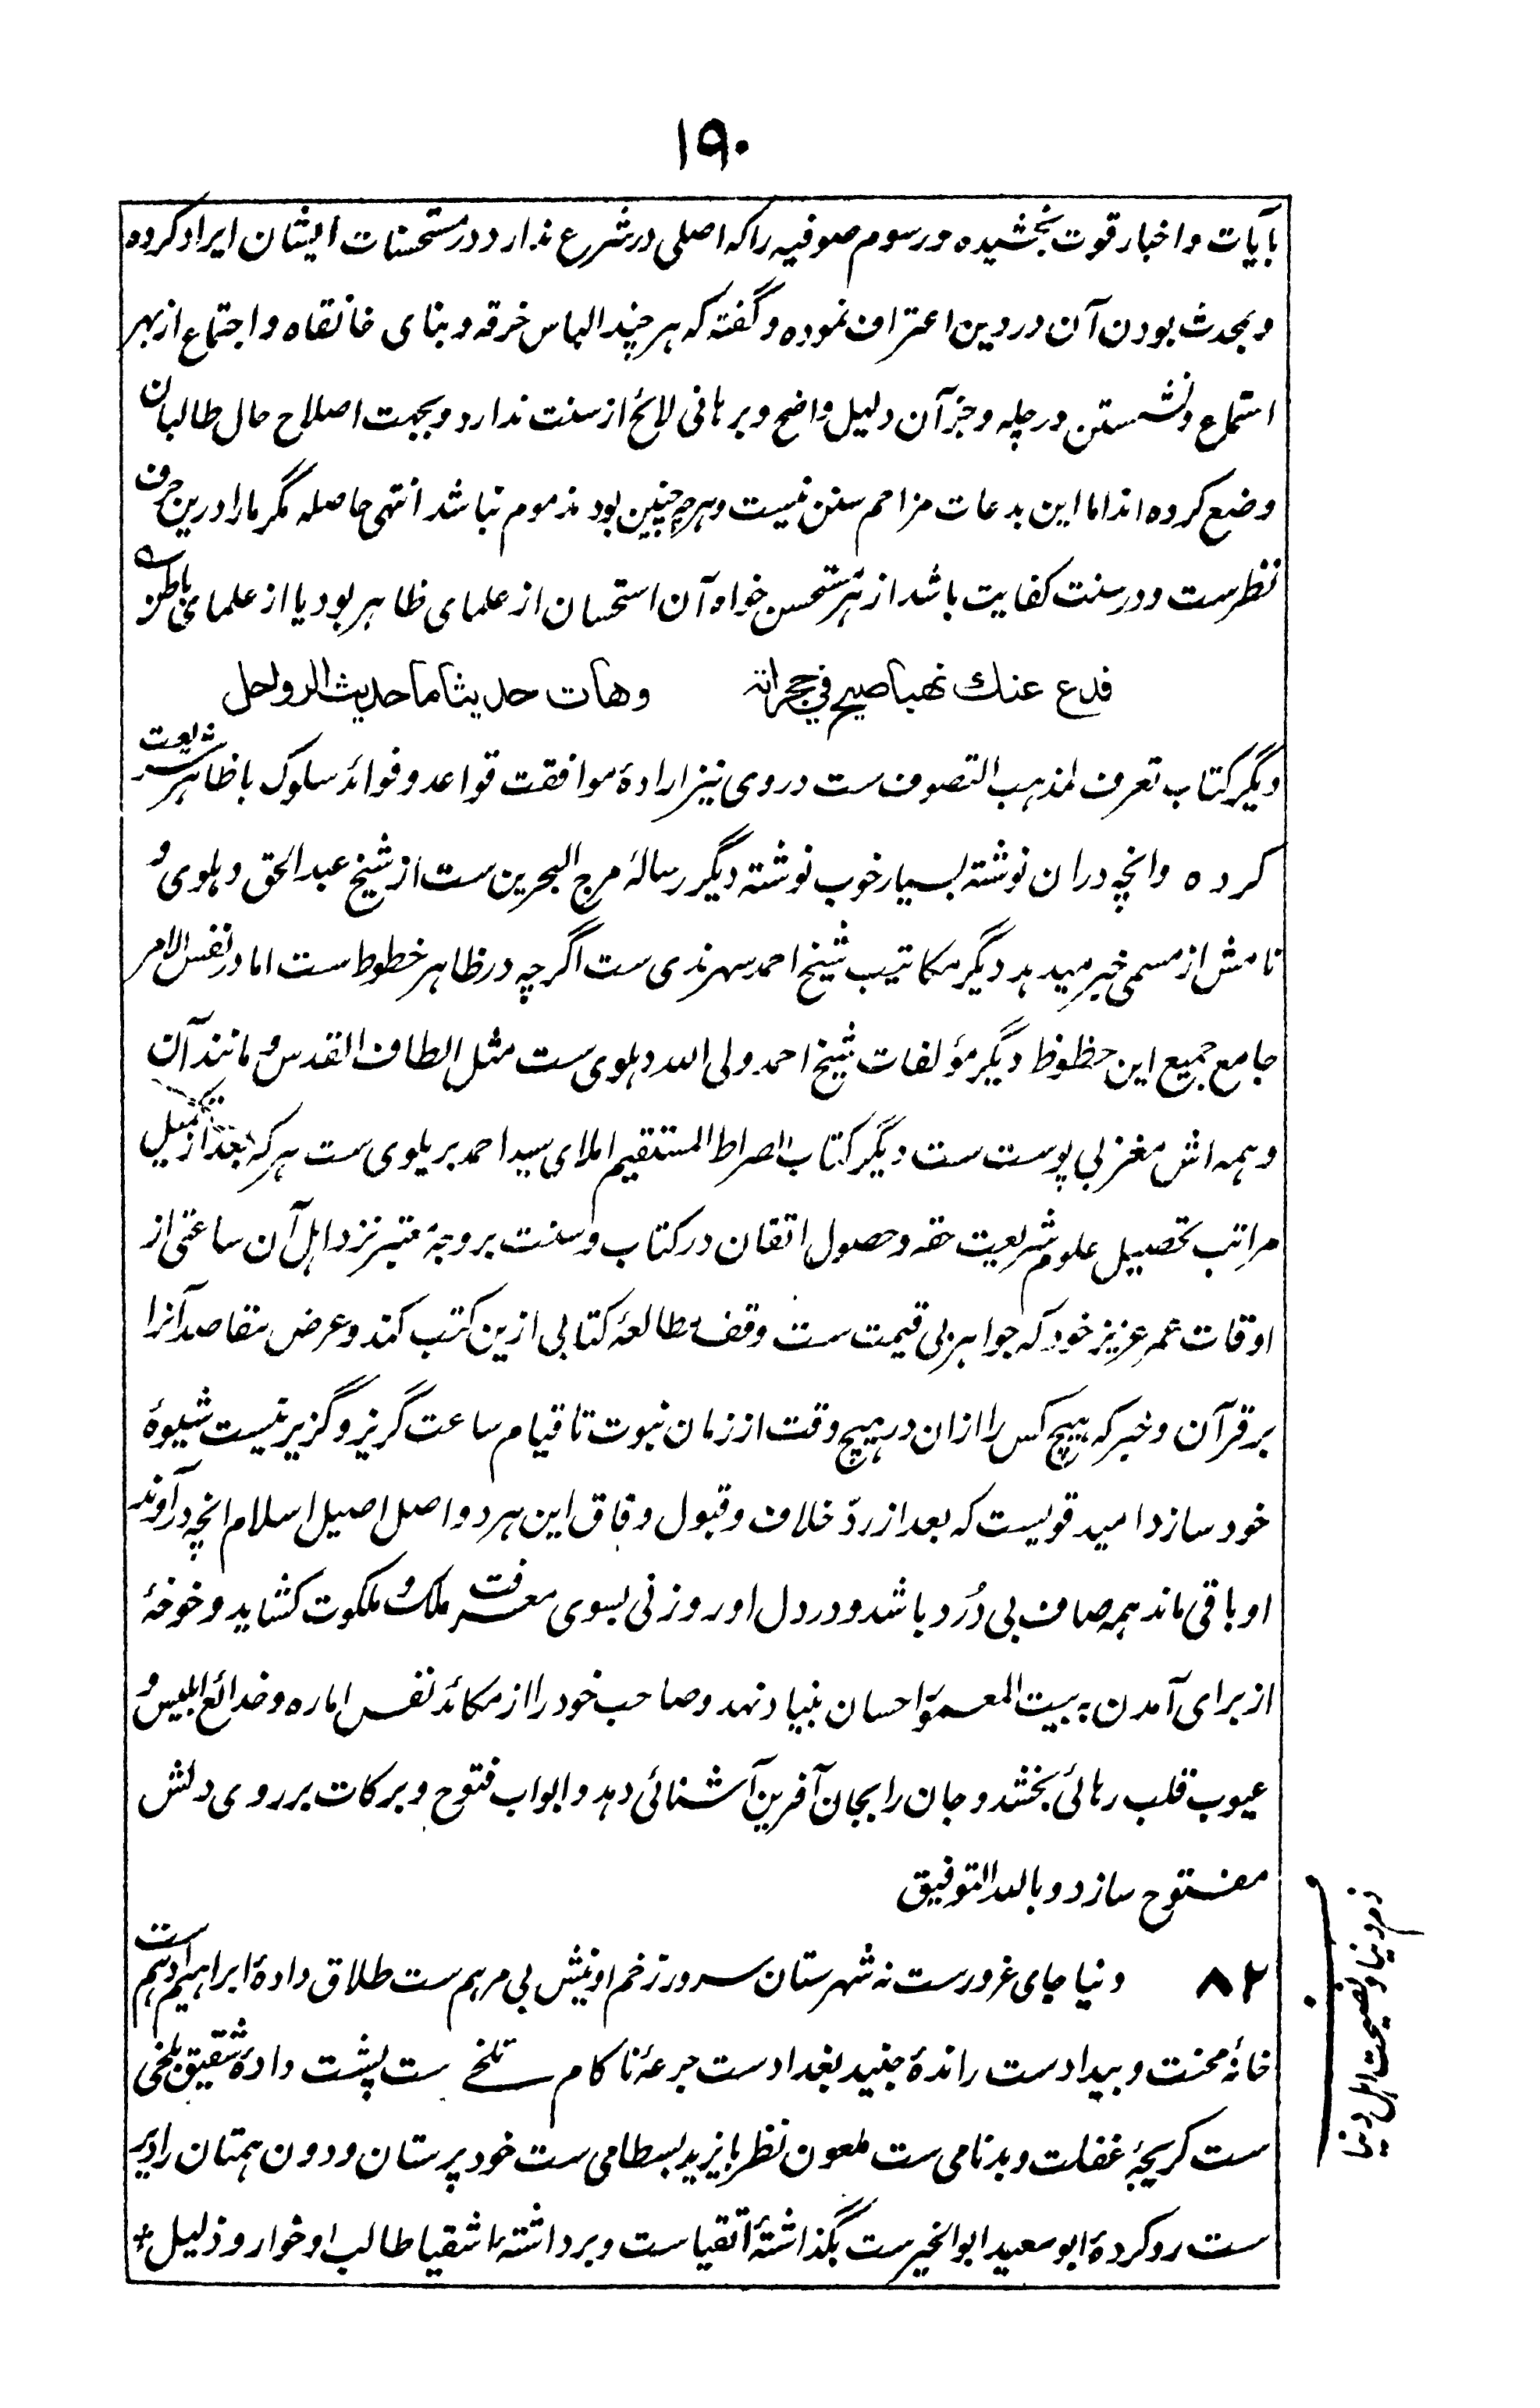 ۱۹۰
بآیات و اخبار قوت بخشیده و رسوم صوفیه را که اصلی در شرع ندارد در مستحسنات ایشان ایراد کرده
و بمحدث بودن آن در دین اعتراف نموده و گفته که هر چند الباس خرقه و بنای خانقاه و اجتماع از بهر
استماع و نشستن در چله و جز آن دلیل واضح و برهانی لائح از سنت ندارد و بجهت اصلاح حال طالبان
وضع کرده اند اما این بدعات مزاحم سنن نیست و هر چه چنین بود مذموم نباشد انتهی حاصله مگر ما را درین حرف
نظرست و در سنت کفایت باشد از هر مستحسن خواه آن استحسان از علمای ظاهر بود یا از علمای باطن ے
فدع عنك نهبا صیح في حجراته وهات حدیثا ما حدیث الرواحل
دیگر کتاب تعرف لمذهب التصوف ست در وی نیز ارادهٔ موافقت قواعد و فوائد سلوک با ظاهر شریعت
کرده وانچه دران نوشته بسیار خوب نوشته دیگر رسالهٔ مرج البحرین ست از شیخ عبد الحق دهلوی و
نامش از مسمی خبر میدهد دیگر مکاتیب شیخ احمد سهرندی ست اگرچه در ظاهر خطوط ست اما در نفس الامر
جامع جمیع این حظوظ دیگر مؤلفات شیخ احمد ولی الله دهلوی ست مثل الطاف القدس و مانند آن
و همه اش مغز بی پوست ست دیگر کتاب الصراط المستقیم املای سید احمد بریلوی ست هر که بعد از تکمیل
مراتب تحصیل علوم شریعت حقه و حصول اتقان در کتاب و سنت بر وجهٔ معتبر نزد اهل آن ساعتی از
اوقات عمر عزیز خود که جواهر بی قیمت ست وقف مطالعهٔ کتابی ازین کتب کند و عرض مقاصد آنرا
بر قرآن و خبر که هیچ کس را ازان در هیچ وقت از زمان نبوت تا قیام ساعت گریز و گزیر نیست شیوهٔ
خود سازد امید قویست که بعد از ردّ خلاف و قبول وفاق این هر دو اصل اصیل اسلام انچه در آوند
او باقی ماند همه صاف بی دُرد باشد و در دل او روزنی بسوی معرفت ملک و ملکوت کشاید و خوخهٔ
از برای آمدن به بیت المعمور احسان بنیاد نهد و صاحب خود را از مکائد نفس اماره و خدائع ابلیس و
عیوب قلب رهائی بخشد و جان را بجان آفرین آشنائی دهد و ابواب فتوح و برکات بر روی دلش
مفتوح سازد و بالله التوفیق
۸۲ دنیا جای غرورست نه شهرستان سرور زخم او نیش بی مرهم ست طلاق دادهٔ ابراهیم ادهم ست
خانهٔ محنت و بیدادست راندهٔ جنید بغدادست جرعهٔ ناکام تلخے ست پشت دادهٔ شقیق بلخی
ست کریچهٔ غفلت و بدنامی ست ملعون نظر بایزید بسطامی ست خود پرستان و دون همتان را دیر
ست رد کردهٔ ابو سعید ابو الخیرست بگذاشتهٔ اتقیاست و برداشتهٔ اشقیا طالب او خوار و ذلیل *
ذم دنیا و نصیحت اهل دنیا